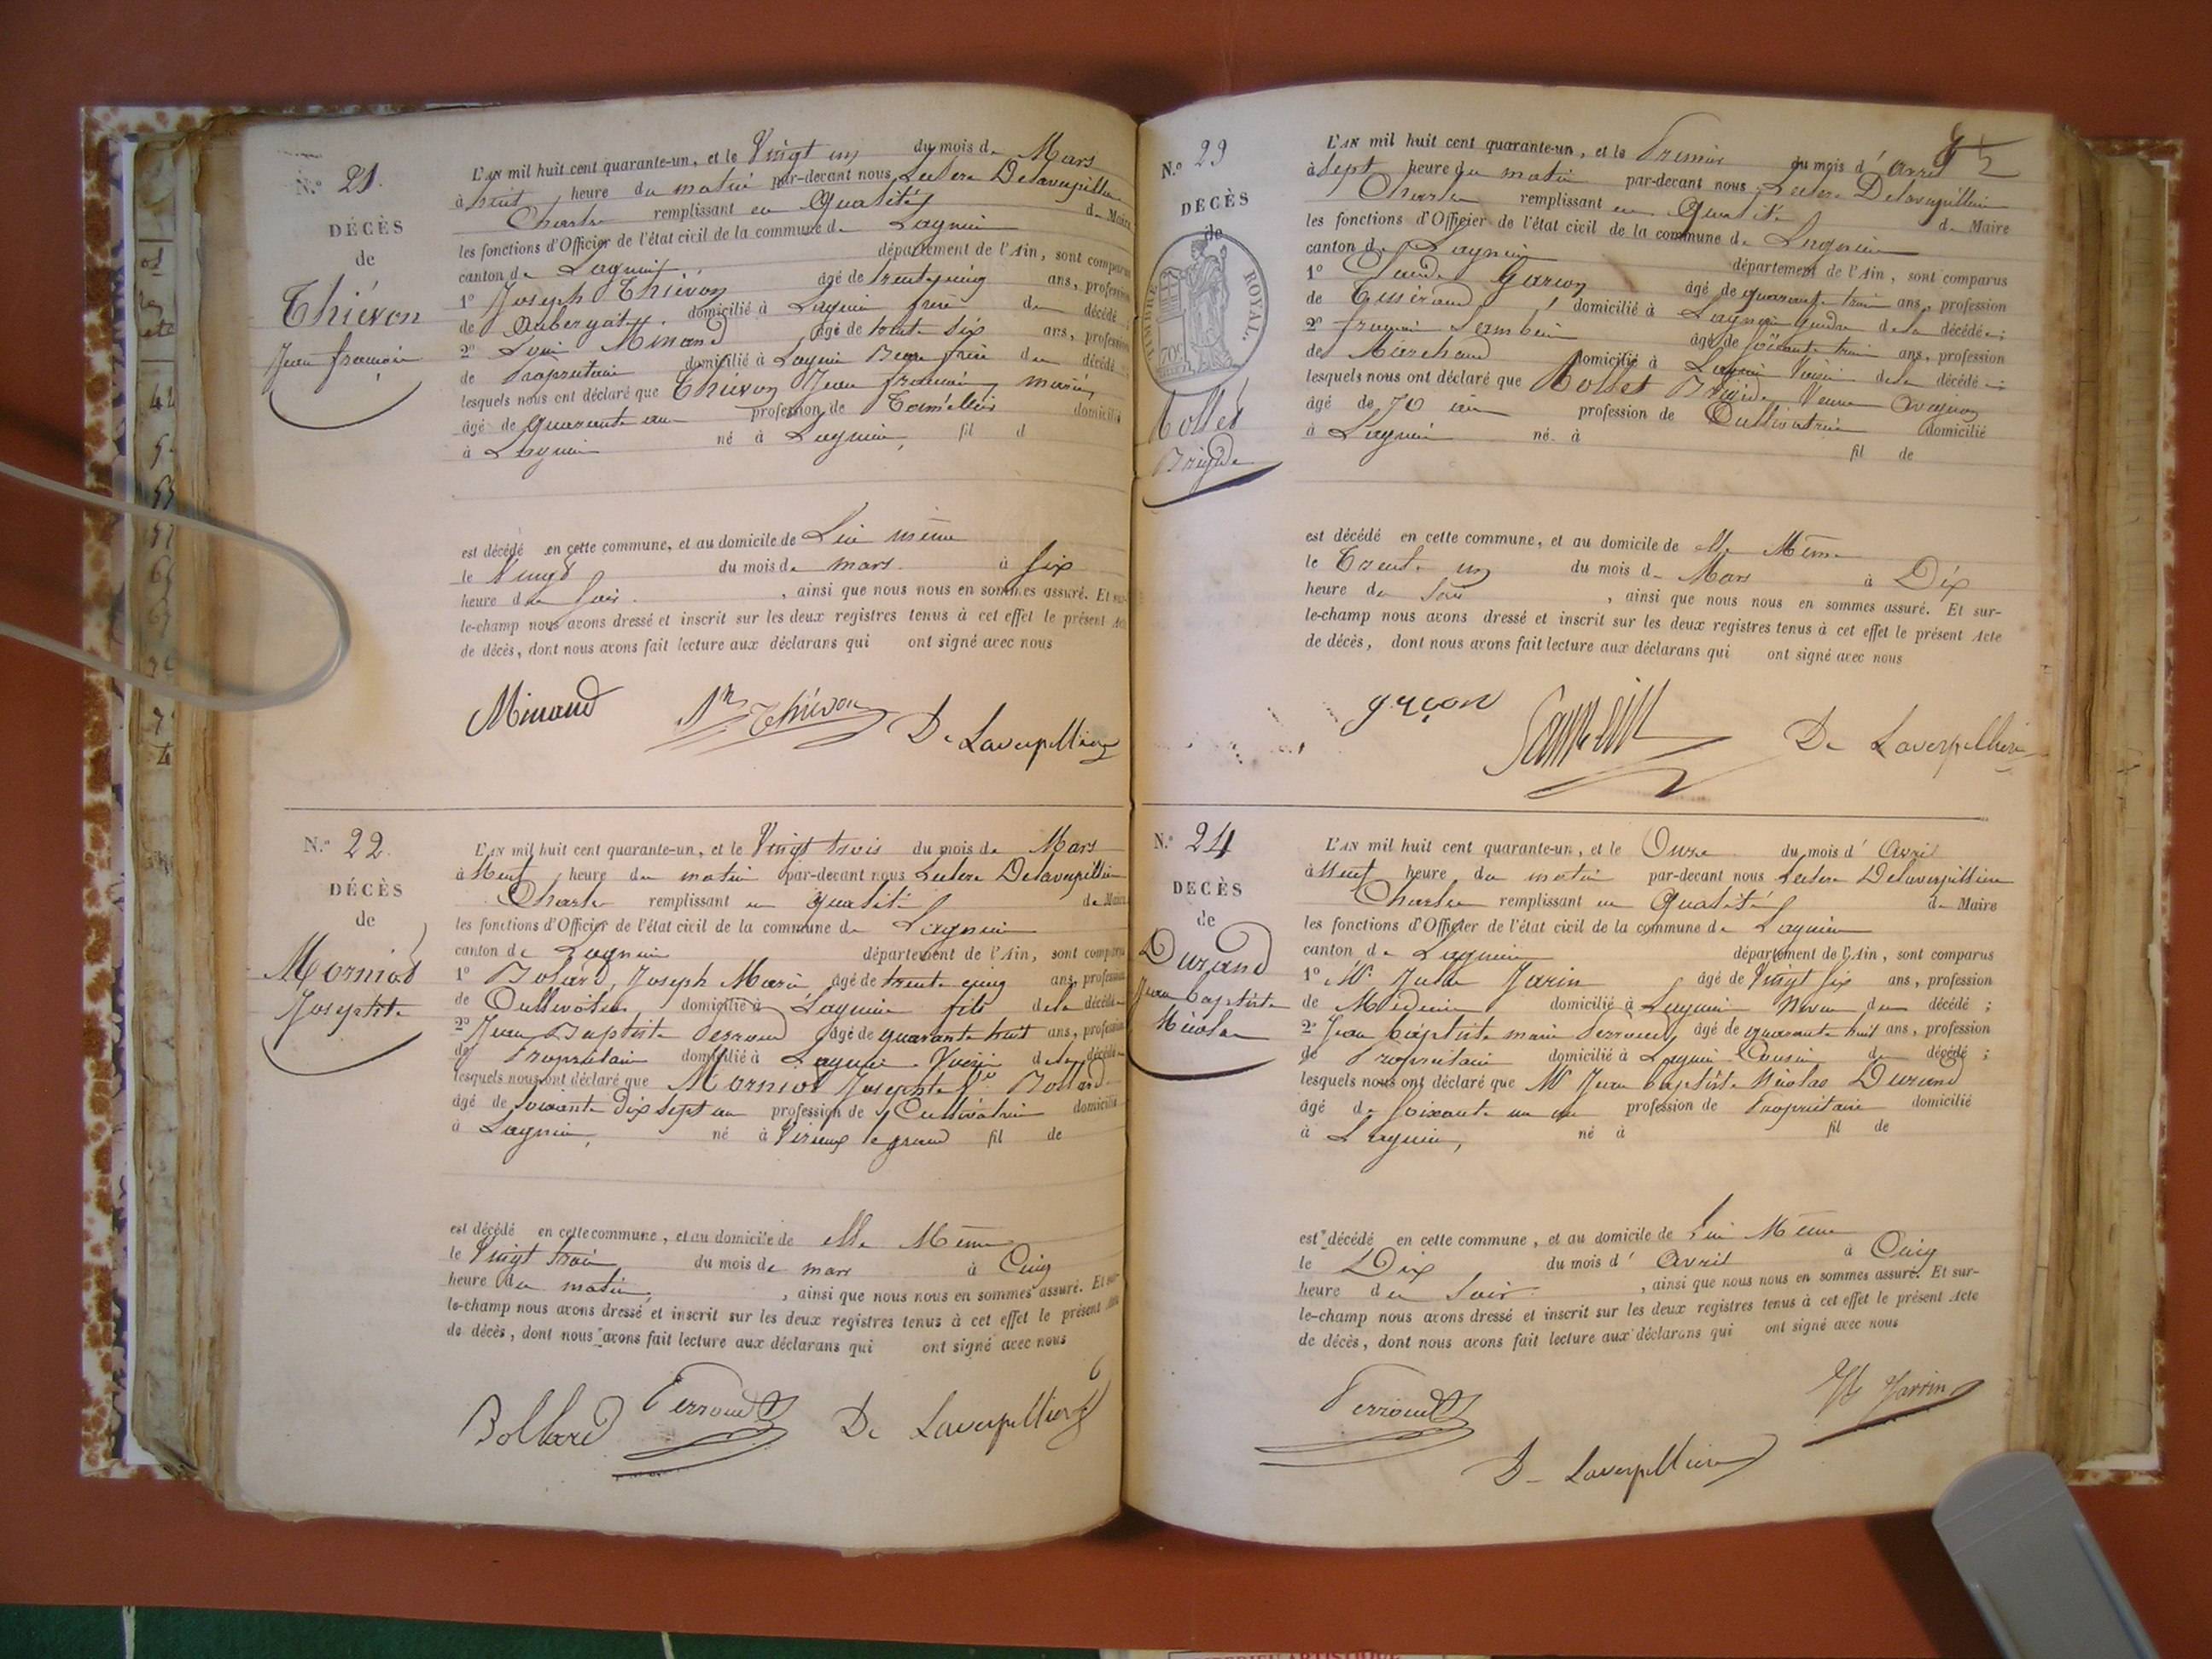 N.° 21.
DÉCÈS
de
Thiévon
Jean françois
L'AN mil huit cent quarante-un, et le Vingt un du mois de Mars
à huit heure du matin par-devant nous Leclerc Delaverpillière
Charles remplissant en Qualité de Maire
les fonctions d'Officier de l'état civil de la commune de Lagnieu
canton de Lagnieu département de l'Ain, sont comparus
1° Joseph Thiévon âgé de trente cinq ans, profession
de Aubergiste domicilié à Lagnieu frère du décédé;
2° Louis Minand âgé de trente six ans, profession
de Propriétaire domicilié à Lagnieu Beau frère du décédé
lesquels nous ont déclaré que Thiévon Jean françois, marié,
âgé de quarante ans profession de domicilié
à Lagnieu né à Lagnieu, fil d
est décédé en cette commune, et au domicile de Lui même
le Vingt du mois de mars à six
heure du soir, ainsi que nous nous en sommes assuré. Et sur-
le-champ nous avons dressé et inscrit sur les deux registres tenus à cet effet le présent Acte
de décès, dont nous avons fait lecture aux déclarans qui ont signé avec nous
Minand Thiévon De Laverpillière
N.° 22.
DÉCÈS
de
Morniod
Josephte
L'AN mil huit cent quarante-un, et le Vingt trois du mois de Mars
à Neuf heure du matin par-devant nous Leclerc Delaverpillière
Charles remplissant en qualité de Maire
les fonctions d'Officier de l'état civil de la commune de Lagnieu
canton de Lagnieu département de l'Ain, sont comparus
1° Bolard, Joseph Marie âgé de trente cinq ans, profession
de Cultivateur domicilié à Lagnieu fils de la décédée
2° Jean Baptiste Perroud âgé de quarante huit ans, profession
de Propriétaire domicilié à Lagnieu Voisin de la décédée
lesquels nous ont déclaré que Morniod Josephte Ve Bollard
âgé de soixante Dix sept ans profession de Cultivatrice domicilié
à Lagnieu, né à Virieux le grand fil de
est décédé en cette commune, et au domicile de elle Même
le Vingt trois du mois de mars à Cinq
heure du matin, ainsi que nous nous en sommes assuré. Et sur-
le-champ nous avons dressé et inscrit sur les deux registres tenus à cet effet le présent Acte
de décès, dont nous avons fait lecture aux déclarans qui ont signé avec nous
Bollard Perroud De Laverpillière
N.° 23
DÉCÈS
de
TIMBRE ROYAL.
70c
Collet
Brigide
L'AN mil huit cent quarante-un, et le Premier du mois d'avril
à sept heure du matin par-devant nous Leclerc Delaverpillière
Charles remplissant en Qualité de Maire
les fonctions d'Officier de l'état civil de la commune de Lagnieu
canton de Lagnieu département de l'Ain, sont comparus
1° Claude Garçon âgé de quarante trois ans, profession
de Tisserand, domicilié à Lagnieu Gendre de la décédée;
2° françois âgé de soixante trois ans, profession
de Marchand domicilié à Lagnieu Voisin de la décédée
lesquels nous ont déclaré que Collet Brigide Veuve
âgé de 70 ans profession de Cultivatrice domicilié
à Lagnieu né à
fil de
est décédé en cette commune, et au domicile de elle Même
le Trente un du mois de Mars à Dix
heure du soir, ainsi que nous nous en sommes assuré. Et sur-
le-champ nous avons dressé et inscrit sur les deux registres tenus à cet effet le présent Acte
de décès, dont nous avons fait lecture aux déclarans qui ont signé avec nous
garçon De Laverpillière
N.° 24
DECÈS
de
Durand
Jean baptiste
Nicolas
L'AN mil huit cent quarante-un, et le Onze du mois d'Avril
à Neuf heure du matin par-devant nous Leclerc Delaverpillière
Charles remplissant en Qualité de Maire
les fonctions d'Officier de l'état civil de la commune de Lagnieu
canton de Lagnieu département de l'Ain, sont comparus
1° Mr Jules Jarrin âgé de Vingt six ans, profession
de Médecin domicilié à Lagnieu Neveu du décédé;
2° Jean baptiste marie Perroud âgé de quarante huit ans, profession
de Propriétaire domicilié à Lagnieu Cousin du décédé;
lesquels nous ont déclaré que Mr Jean baptiste Nicolas Durand
âgé de soixante un an profession de Propriétaire domicilié
à Lagnieu, né à fil de
est décédé en cette commune, et au domicile de Lui Même
le Dix du mois d'avril à Cinq
heure du soir, ainsi que nous nous en sommes assuré. Et sur-
le-champ nous avons dressé et inscrit sur les deux registres tenus à cet effet le présent Acte
de décès, dont nous avons fait lecture aux déclarans qui ont signé avec nous
Perroud Jarrin
De Laverpillière